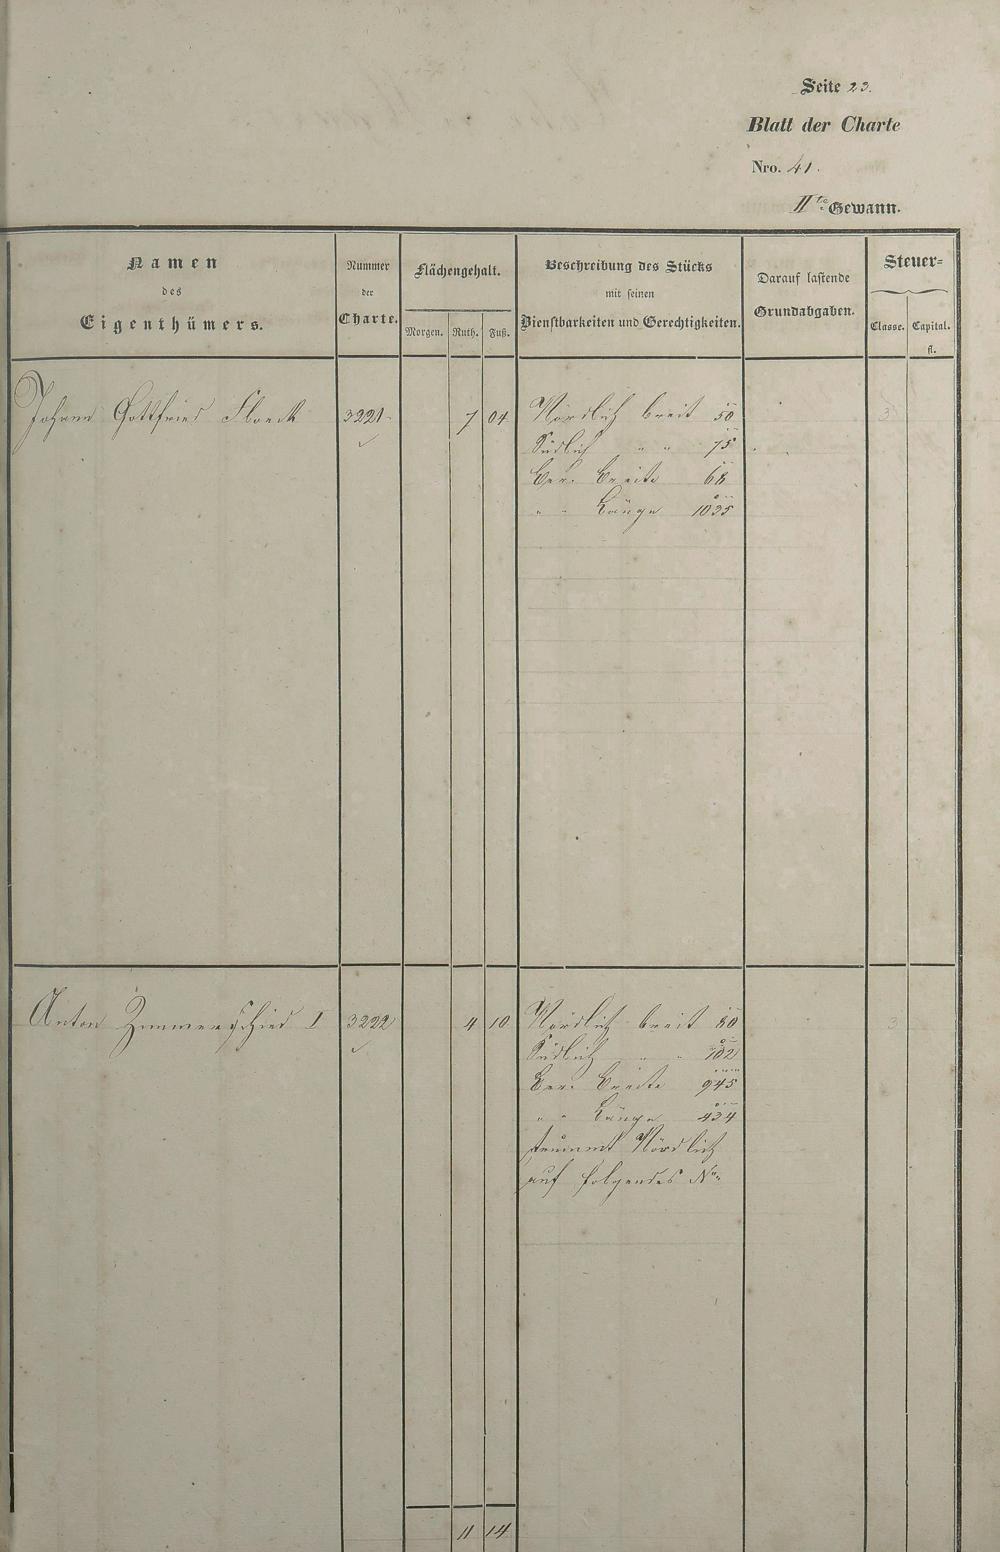 Seite 23.
Blatt der Charte
Nro. 41.
IIte Gewann.
Namen
des
Eigenthümers.
Nummer
der
Charte.
Flächengehalt.
Morgen. Ruth. Fuß.
Beschreibung des Stücks
mit seinen
Dienstbarkeiten und Gerechtigkeiten.
Darauf lastende
Grundabgaben.
Steuer=
Classe. Capital.
fl.
Johann Gottfried 3221. 7 04 Nördlich breit 50 3
Südlich " " 75
Ber. Breite 68
" " Länge 1035
Anton Zimmerschied I 3222 4 10 Nördlich breit 80 3
Südlich " " 102
Ber. Breite 945
" " Länge 434
Nördlich
auf folgendes No
11 14